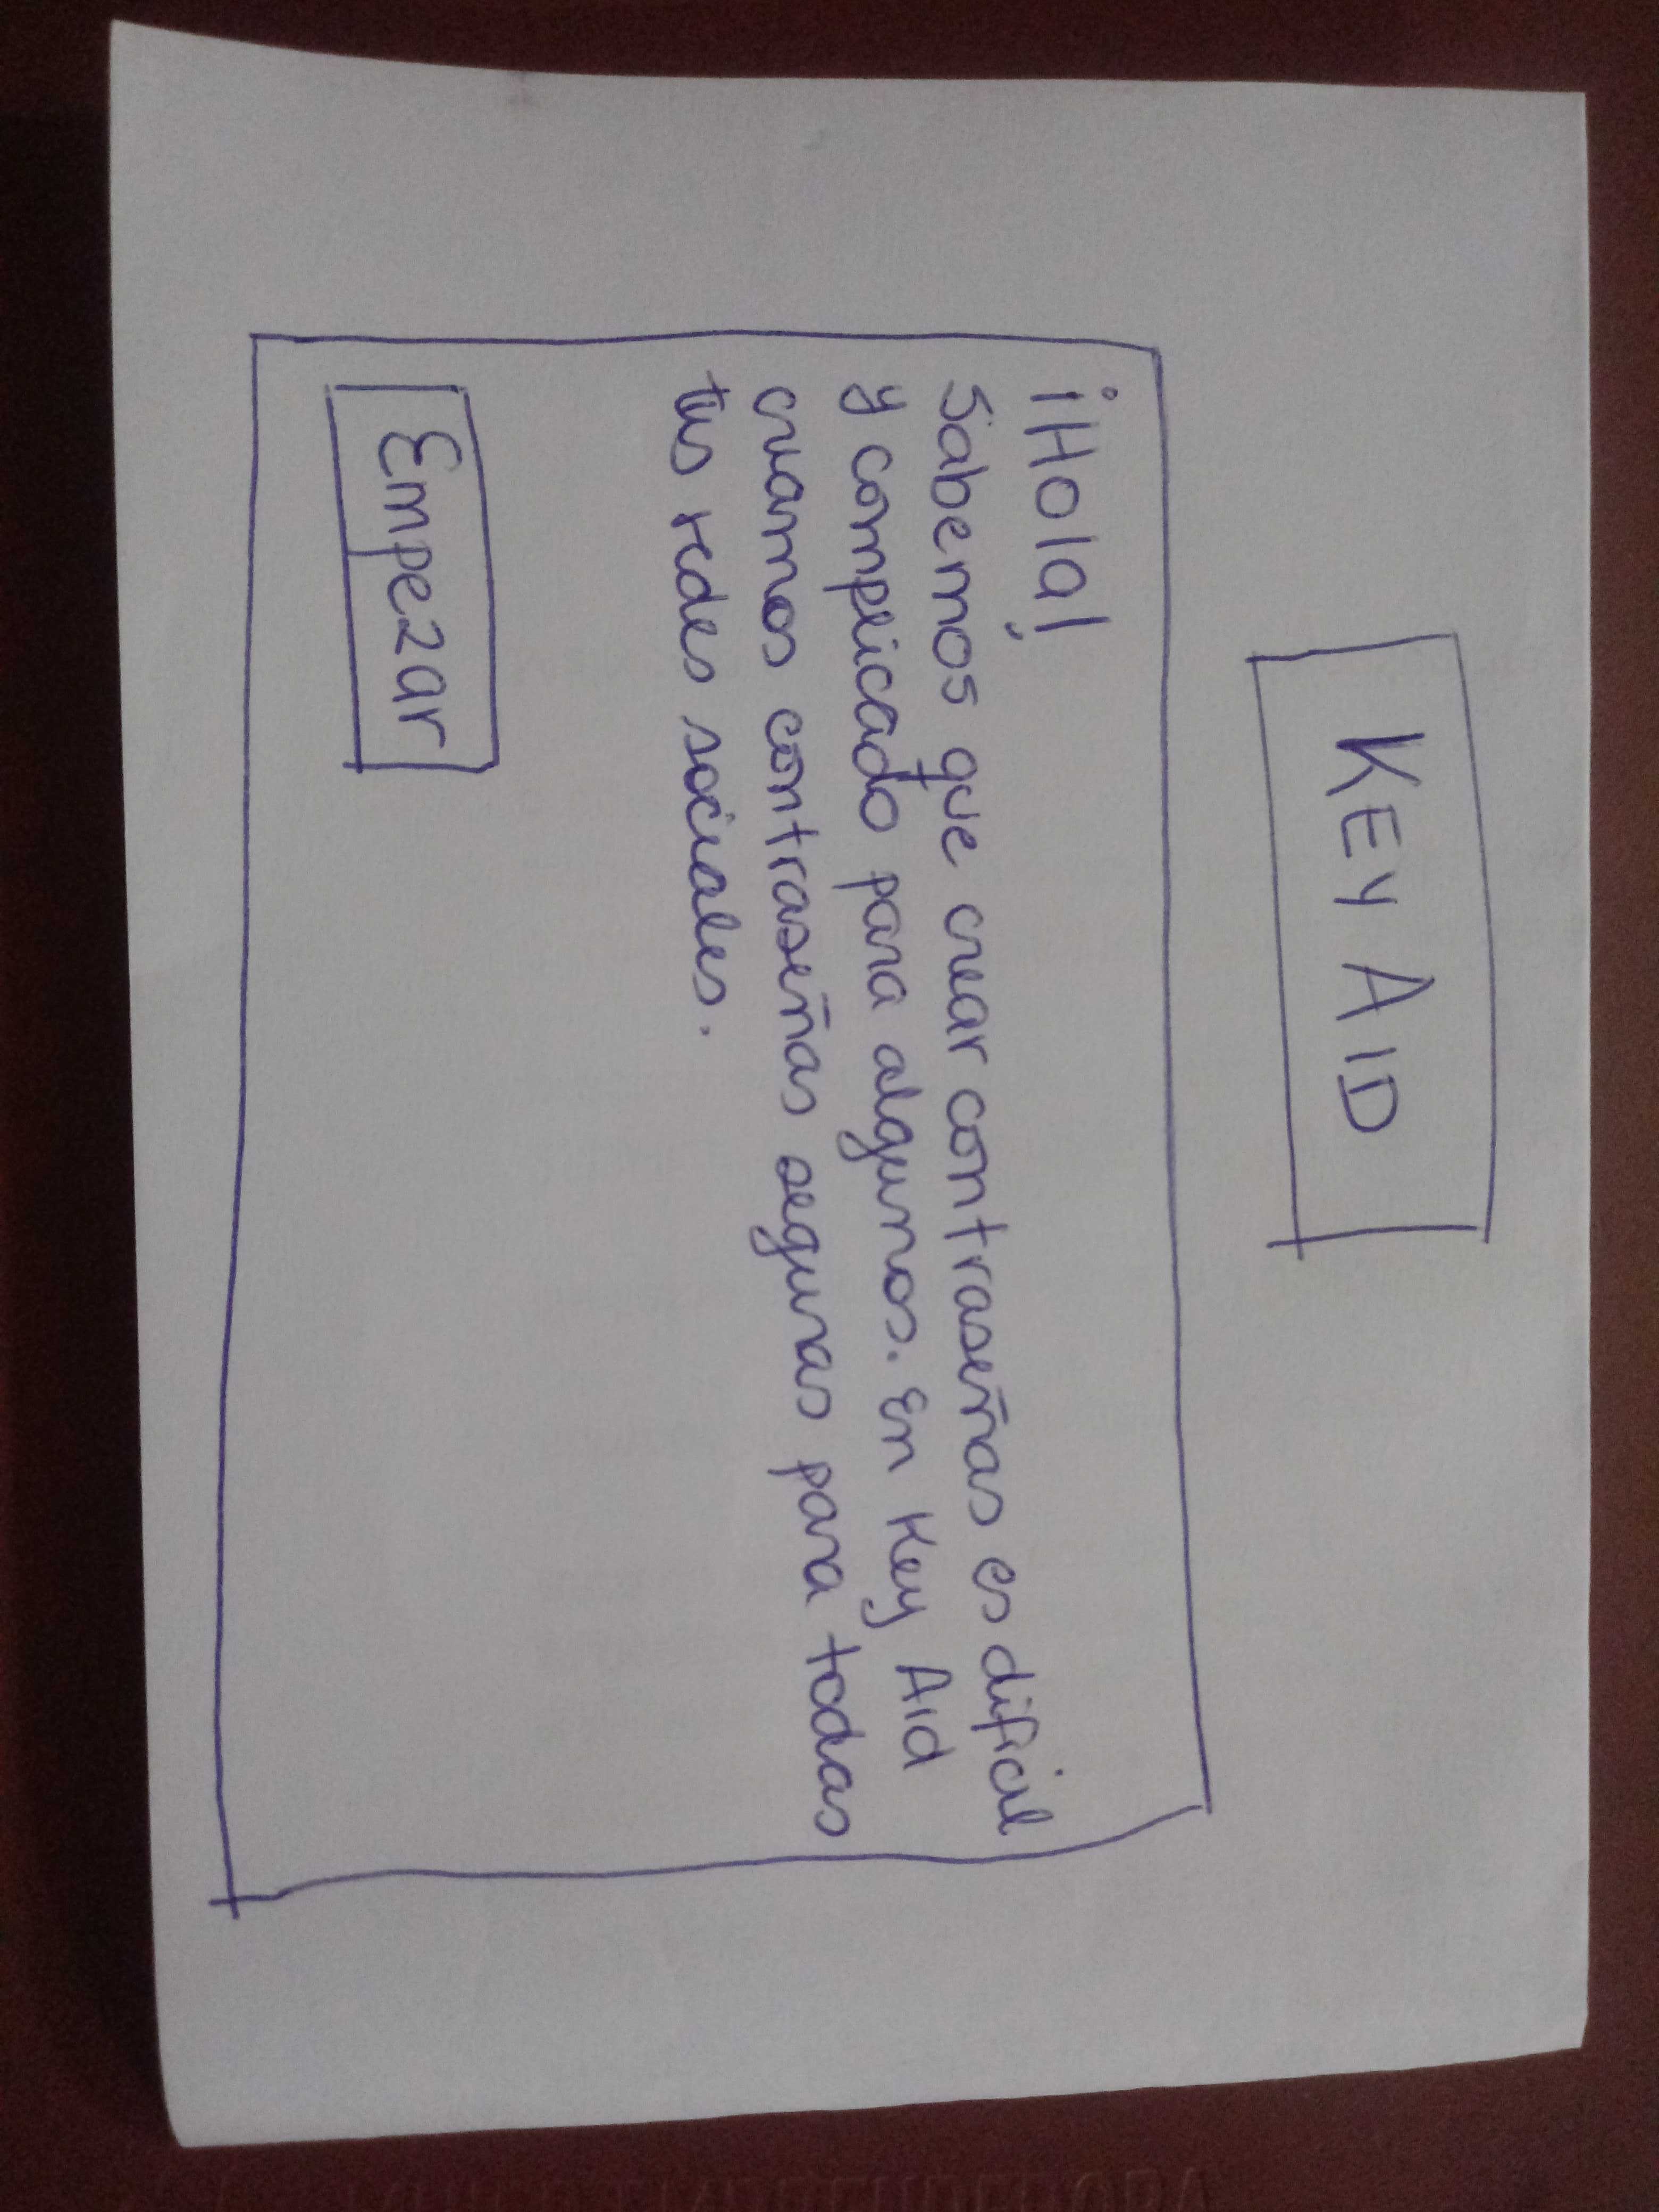 KEY AID
¡Hola!
Sabemos que crear contraseñas es dificil
y complicado para algunos. En Key Aid
creamos contraseñas seguras para todas
tus redes sociales.
Empezar